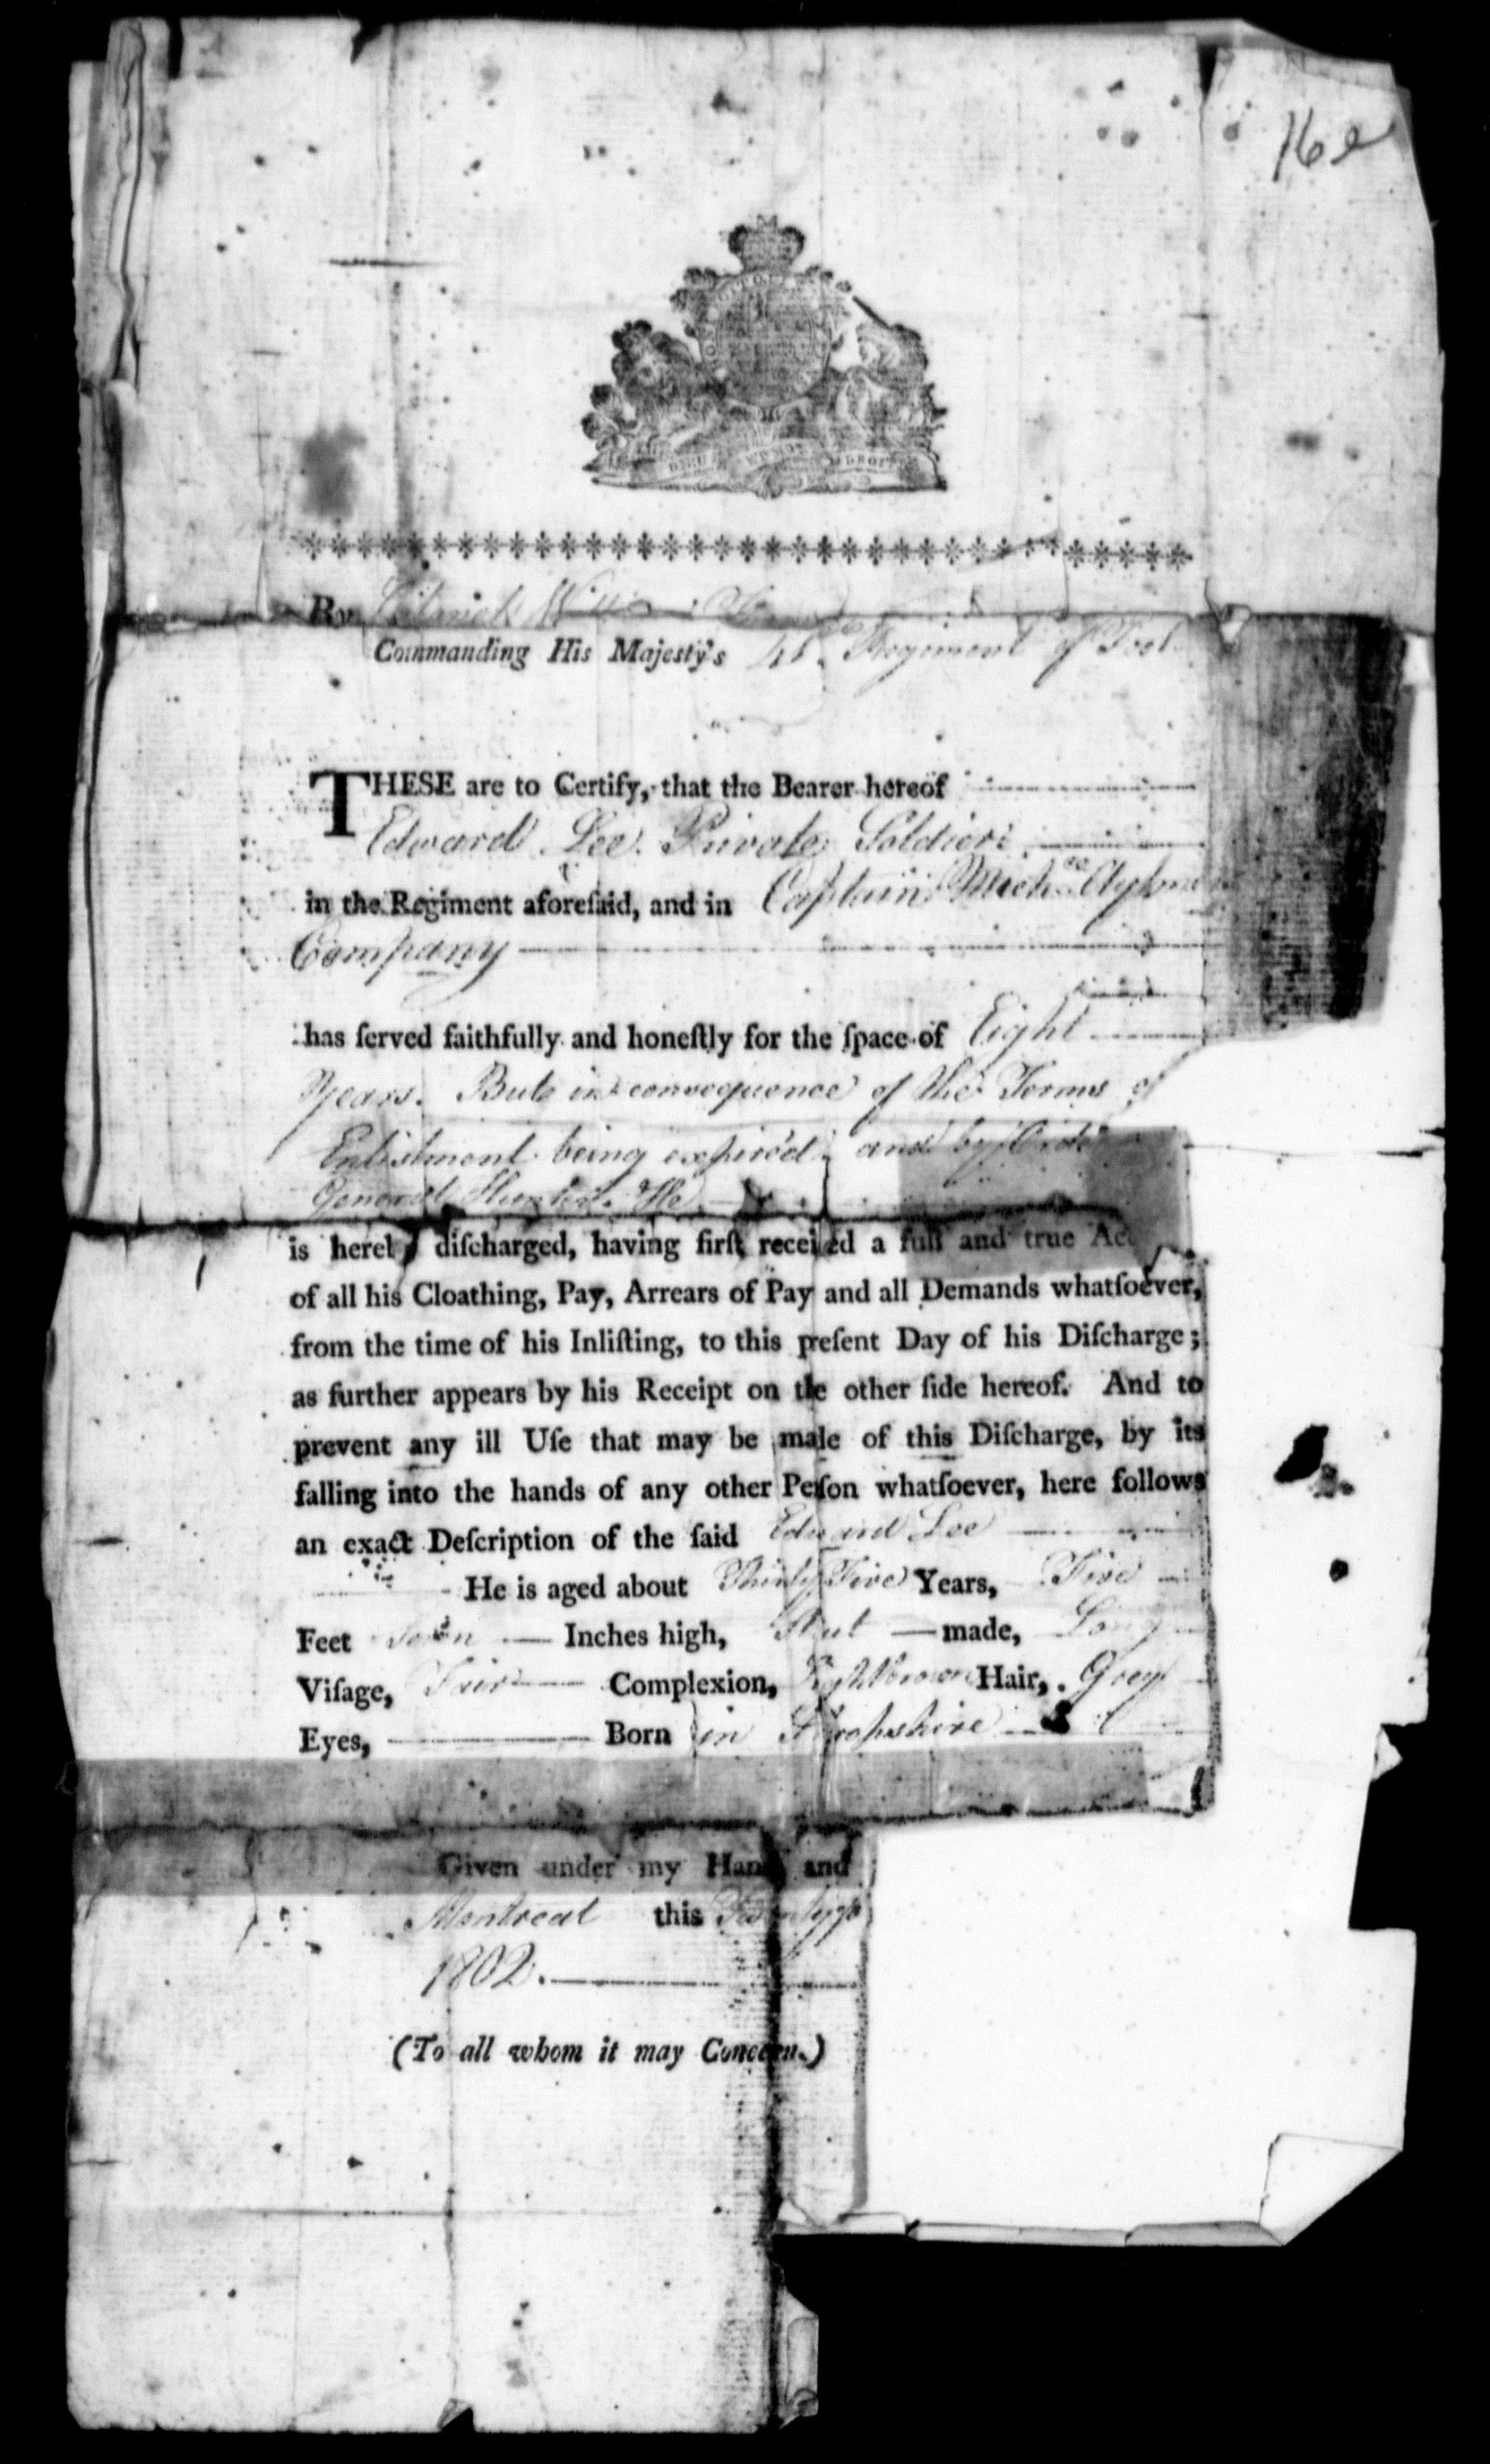 16e
DIEU ET MON DROIT
By Colonel
Commanding His Majesty's 41st Regiment of Foot
THESE are to Certify, that the Bearer hereof
Edward Lee Private Soldier
in the Regiment aforeſaid, and in Captain Mich
Company
has ſerved faithfully and honeſtly for the ſpace of Eight
Years. But in consequence of the Terms of
Enlistment being expired, and by Order
General Hunter. He
is hereby diſcharged, having firſt received a full and true Acc
of all his Cloathing, Pay, Arrears of Pay and all Demands whatſoever,
from the time of his Inliſting, to this preſent Day of his Diſcharge;
as further appears by his Receipt on the other ſide hereof. And to
prevent any ill Uſe that may be made of this Diſcharge, by its
falling into the hands of any other Perſon whatſoever, here follows
an exact Deſcription of the ſaid Edward Lee
He is aged about Thirty Five Years, Five
Feet Seven Inches high, Stout made, Long
Viſage, Fair Complexion, Light brown Hair, Grey
Eyes, Born in Shropshire
Given under my Hand and
Montreal this
1802.
(To all whom it may Concern.)